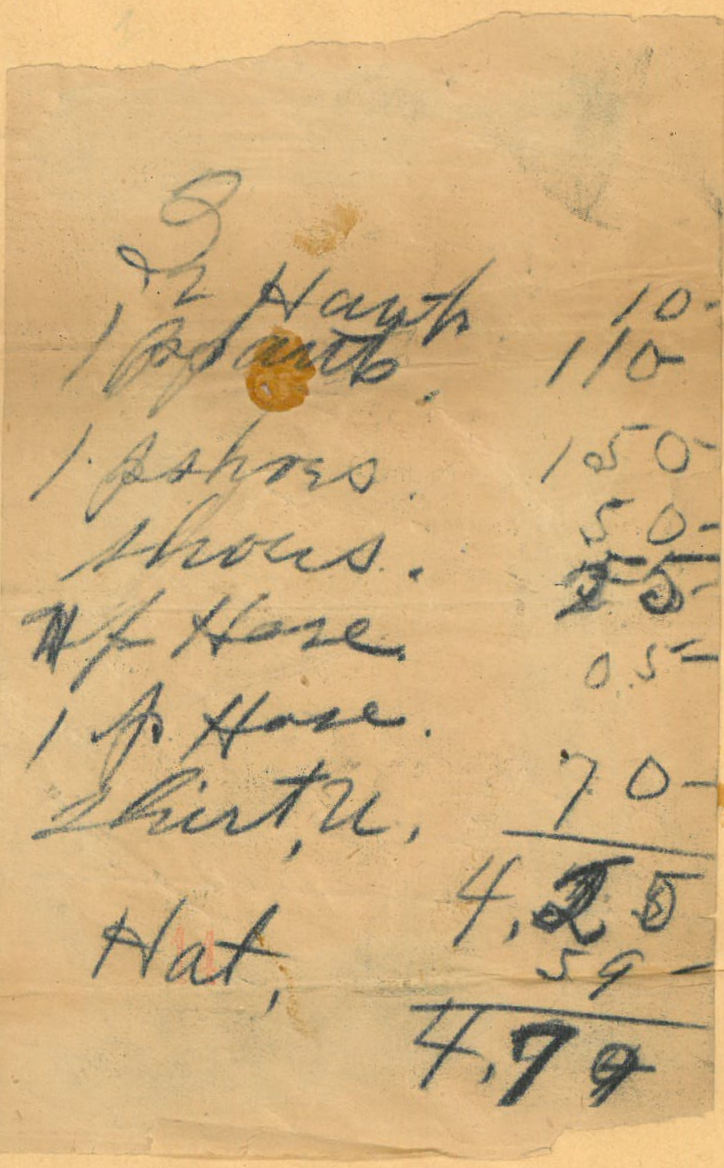 2 Hanh 10-
1 p pants. 110
1. p shoes. 150-
shoes. 50-
25-
p Hose. 05-
1 p. Hose.
Shirt, U, 70-
4,25
Hat, 59-
4,79